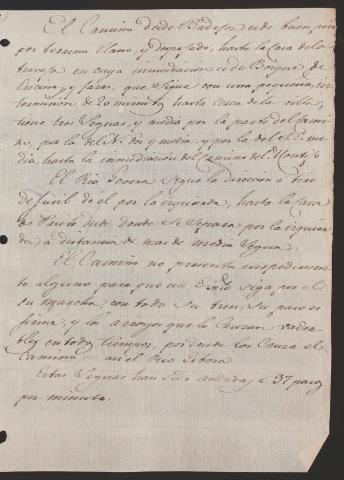 El Camino desde Badajoz es de buen piso
por terreno llano, y despejado, hasta la Casa de la
travesa en cuya inmediacion es de Bosque, de
Encina, y Jaras, que sigue con una pequeña in-
terrmision de 20 minutos hasta cerca de la villa;
tiene tres Leguas y media por la parte del cami-
no, por la del N. dos y media, y por la del E. me-
dia, hasta la inmediacion del camino del Montijo
El Rio Jebora sigue la direccion a tiro
de fusil de él por la izquierda, hasta la Casa
de Prieto desde donde se separa por la izquier-
da a distancia de mas de media Legua.
El Camino no presenta impedimen-
to alguno para que un siga por el
su marcha con todo su tren, su piso es
firme, y los arroyos que lo Cruzan vadea-
bles en todos tiempos, por donde los Cruza el
Camino no asi el Rio Jebora
Estas Leguas han sido andadas a 37 pasos
por minuto.